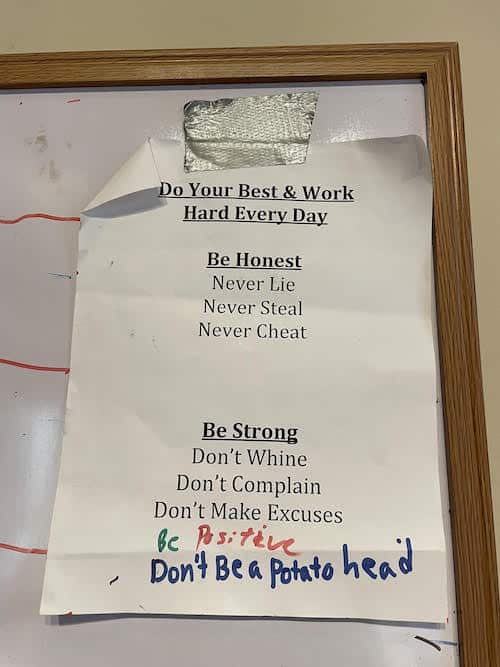 Do Your Best & Work
Hard Every Day
Be Honest
Never Lie
Never Steal
Never Cheat
Be Strong
Don't Whine
Don't Complain
Don't Make Excuses
Be Positive
Don't Be a Potato head